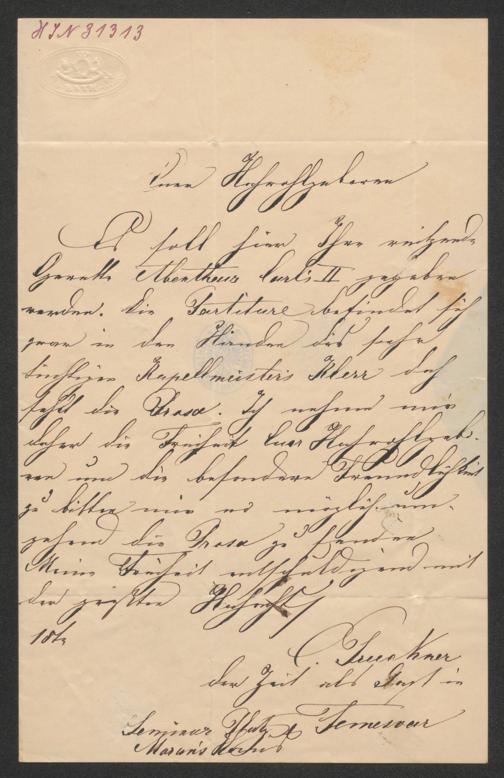 HIN 31313
Euer Hochwohlgeboren
Es soll hier Ihre reitzende
Operette Abentheuer Carls II gegeben
werden. Die Partiture befindet sich
zwar in den Händen des sehr
tüchtigen Kapellmeisters Klerr doch
fehlt die Prosa. Ich nehme mir
daher die Freiheit Euer Hochwohlgebo-
ren um die besondere Freundlichkeit
zu bitten mir wo möglich um-
gehend die Prosa zu senden
Meine Freiheit entschuldigend mit
der größten Hochacht
C. Bruckner
der Zeit als Gast in
Temesvar
Seminar Platz